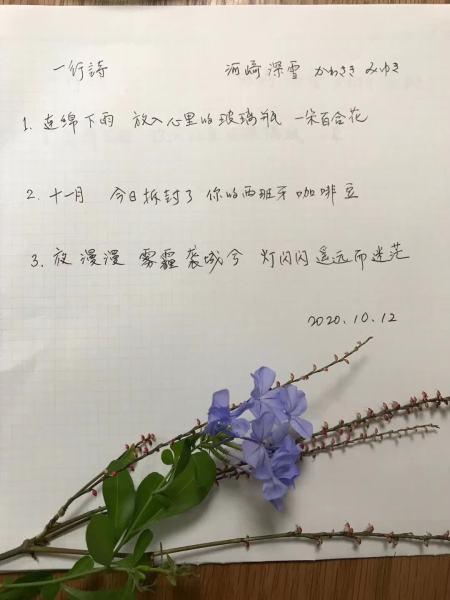 一行詩 河崎深雪 かわさき みゆき
1. 连绵下雨 放入心里的玻璃瓶 一朵百合花
2. 十一月 今日拆封了 你的西班牙咖啡豆
3. 放漫漫 雾霾袭城兮 灯闪闪遥远而迷茫
2020.10.12